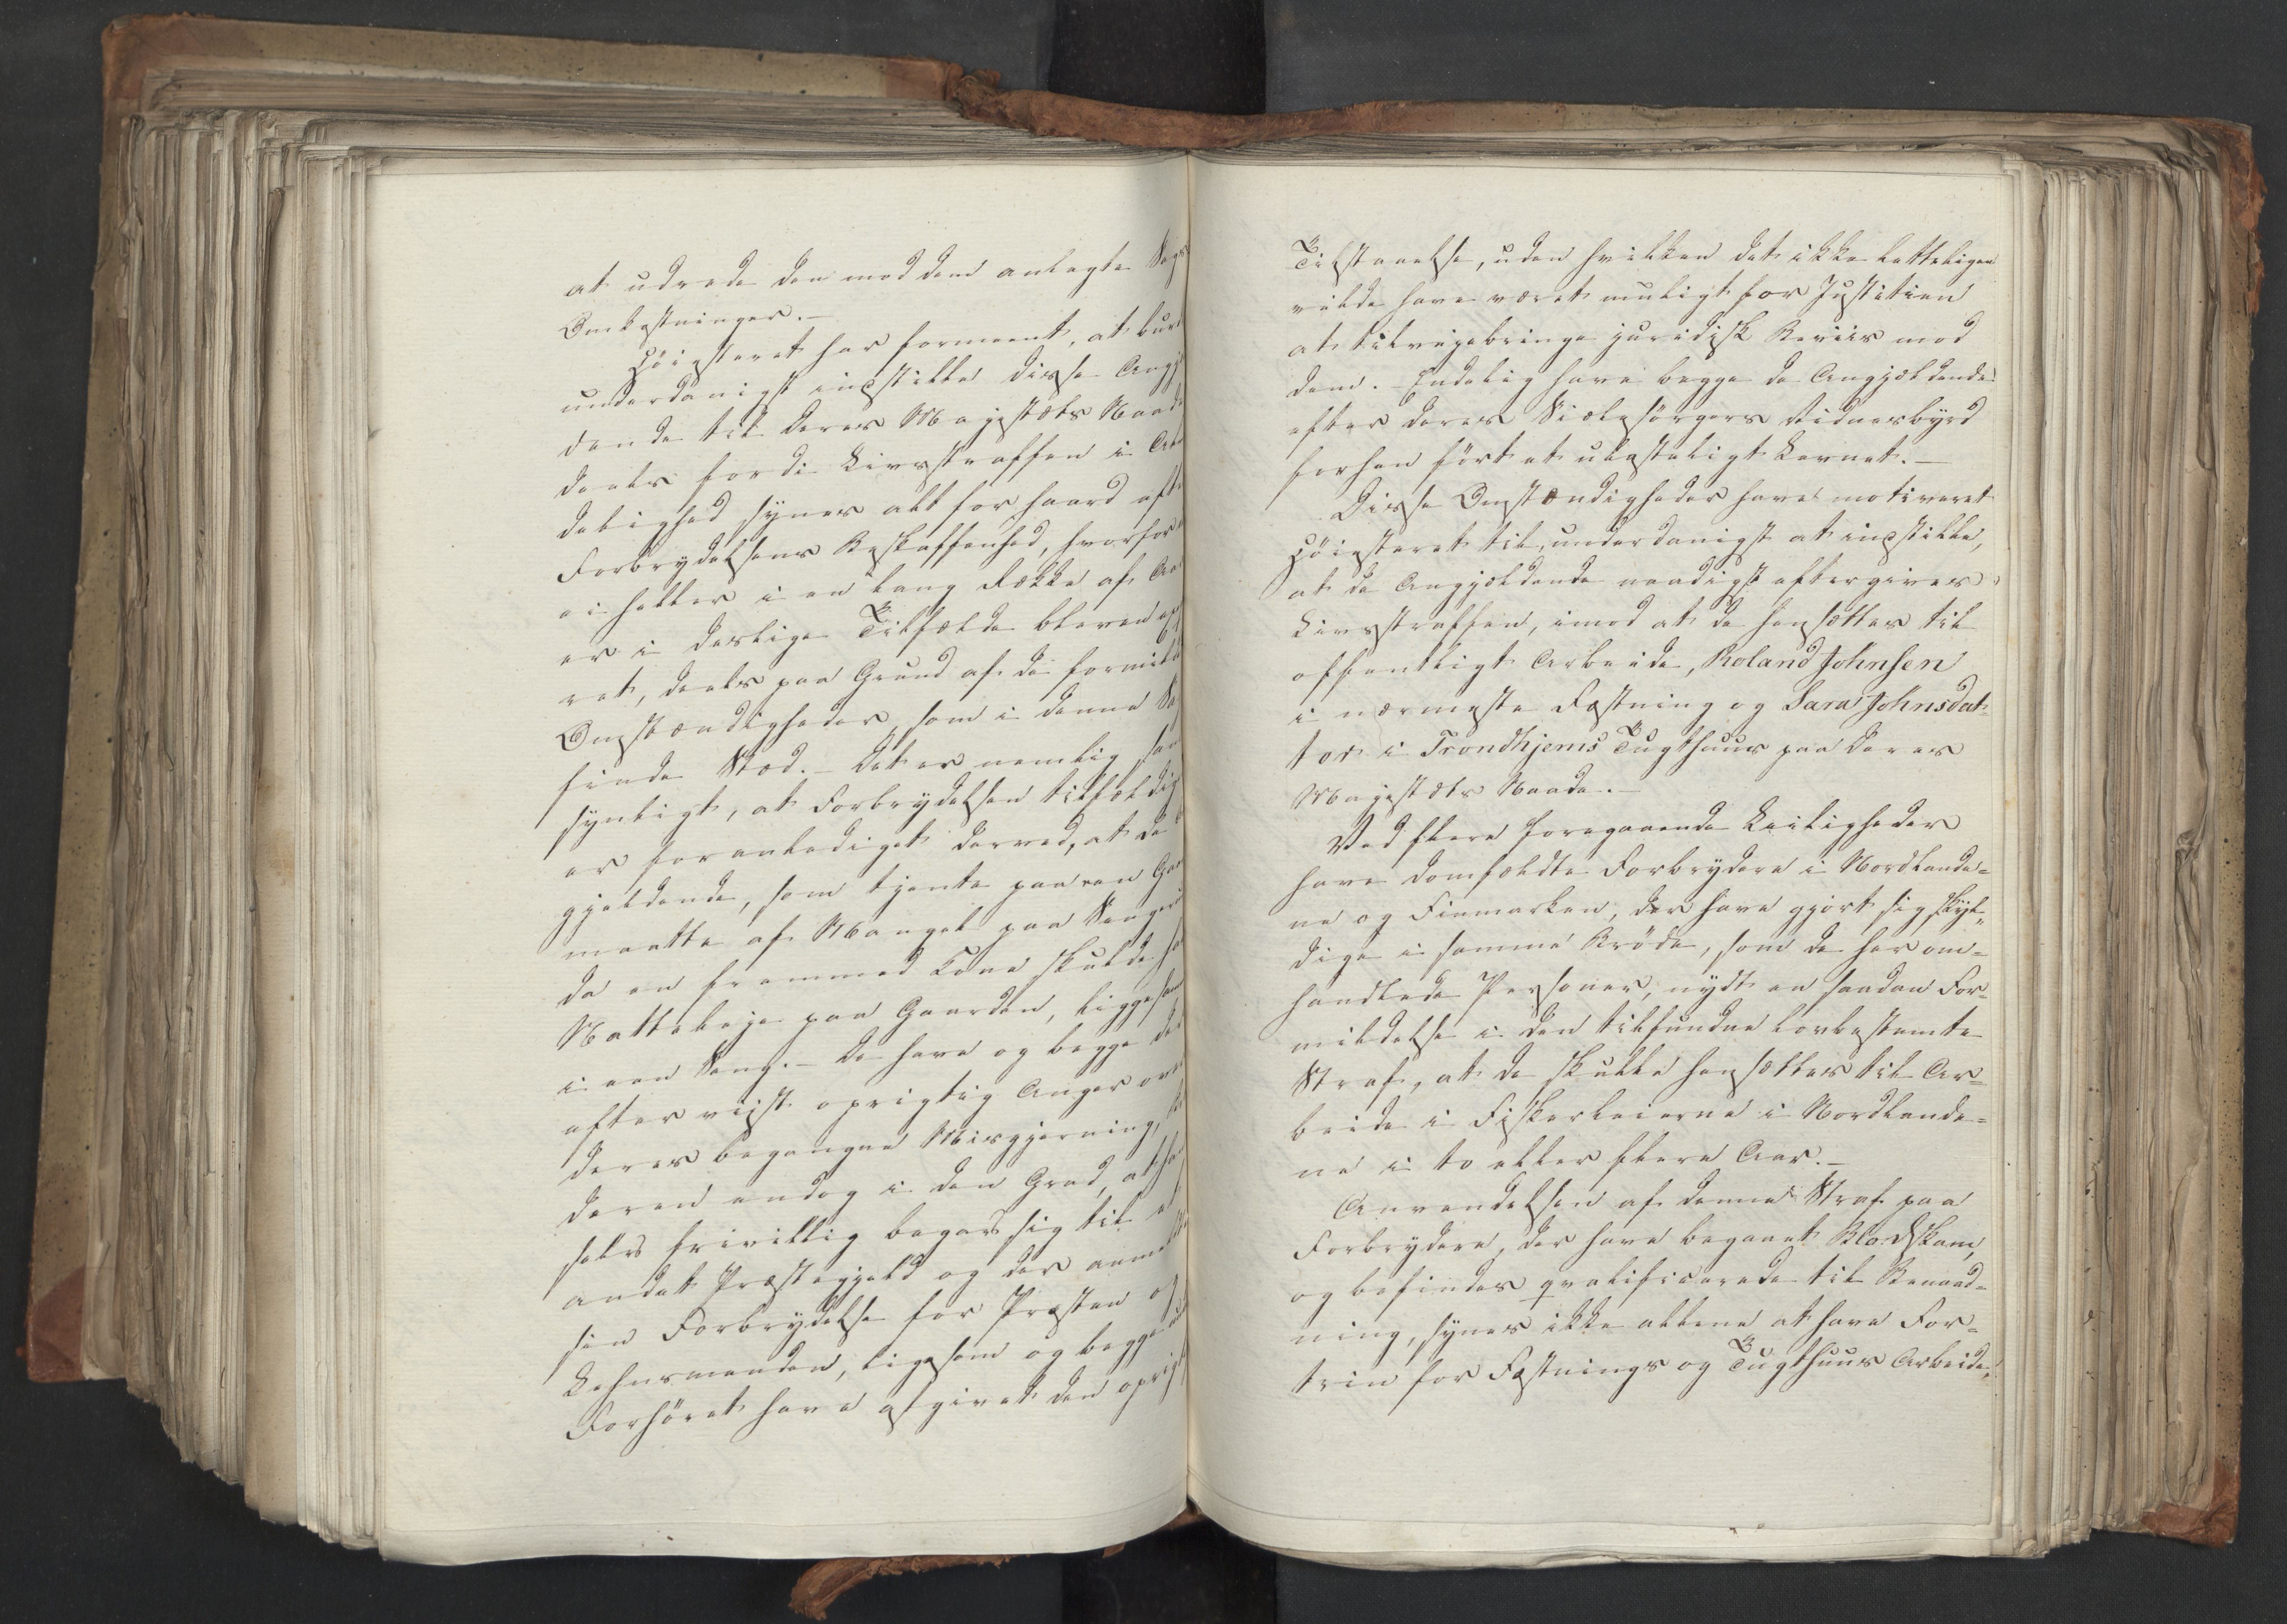 at udrede den mod dem anlagte Sags
Omkostninger.-
Höiesteret har formeent, at burde
underdanigst indstille disse Angj
dende til Deres Majestæts Naade
deels fordi Livsstraffen i Al
delighed synes alt for haard efter
Forbrydelsens Beskaffenhed, hvorfor
ei heller i en lang Række af Aar
er i deslige Tilfælde bleven
ret, deels paa Grund af de formild
Omstændigheder, som i denne Sag
finde Sted.- Det er nemlig san
synligt, at Forbrydelsen tilfældig
er foranlediget derved, at de
gjeldende, som tjente paa een Gaa
maatte af Mangel paa Senger
da en fremmed Kone skulde ha
Natteleje paa Gaarden, ligge sam
i een Seng.- De have og begge der
efter viist oprigtig Anger over
deres begangne Misgjerning,
deren endog i den Grad, at han
selv frivillig begav sig til et
andet Præstegjeld og der anmeldte
sin Forbrydelse for Præsten og
Lehnsmanden, ligesom og begge
Forhöret have afgivet den oprigt
Tilstaaelse, uden hvilken det ikke letteligen
vilde have været muligt for Justitien
at tilvejebringe juridisk Beviis mod
dem.- Endelig have begge de Angjældende
efter deres Siælesörgers Vidnesbyrd
forhen fört et ulasteligt Levnet.-
Disse Omstændigheder have motiveret
Höiesteret til, underdanigst at indstille,
at de Angjældende naadigst eftergives
Livsstraffen, imod at de hensættes til
offentligt Arbeide, Roland Johnsen
i nærmeste Fæstning og Sara Johnsdat-
ter i Trondhjems Tugthuus paa Deres
Majestæts Naade.-
Ved flere foregaaende Leiligheder
have domfældte Forbrydere i Nordlande=
ne og Finmarken, der have gjort sig skyl=
dige i samme Bröde, som de her om=
handlede Personer, nydt en saadan For=
mildelse i den tilfundne lovbestemte
Straf, at de skulle hensættes til Ar=
beide i Fiskerleierne i Nordlande=
ne i to eller flere Aar.-
Anvendelsen af denne Straf paa
Forbrydere, der have begaaet Blodskam,
og befindes qvalificerede til Benaad=
ning, synes ikke allene at have For=
trin for Fæstnings og Tugthuus Arbeide,